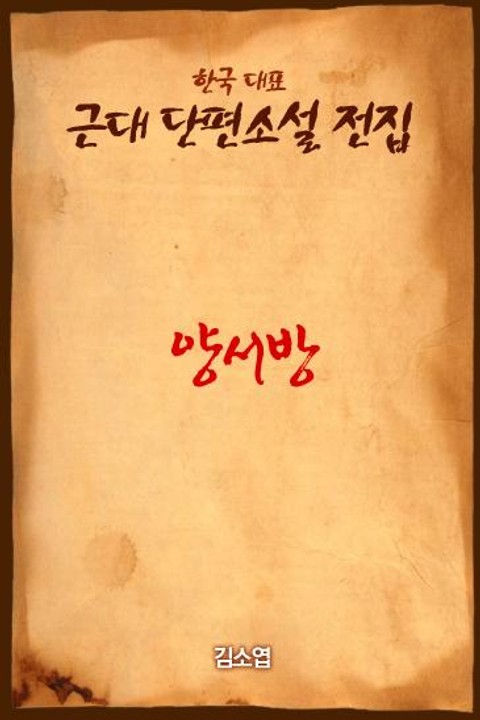 한국 대표
근대 단편소설 전집
양서방
김소엽